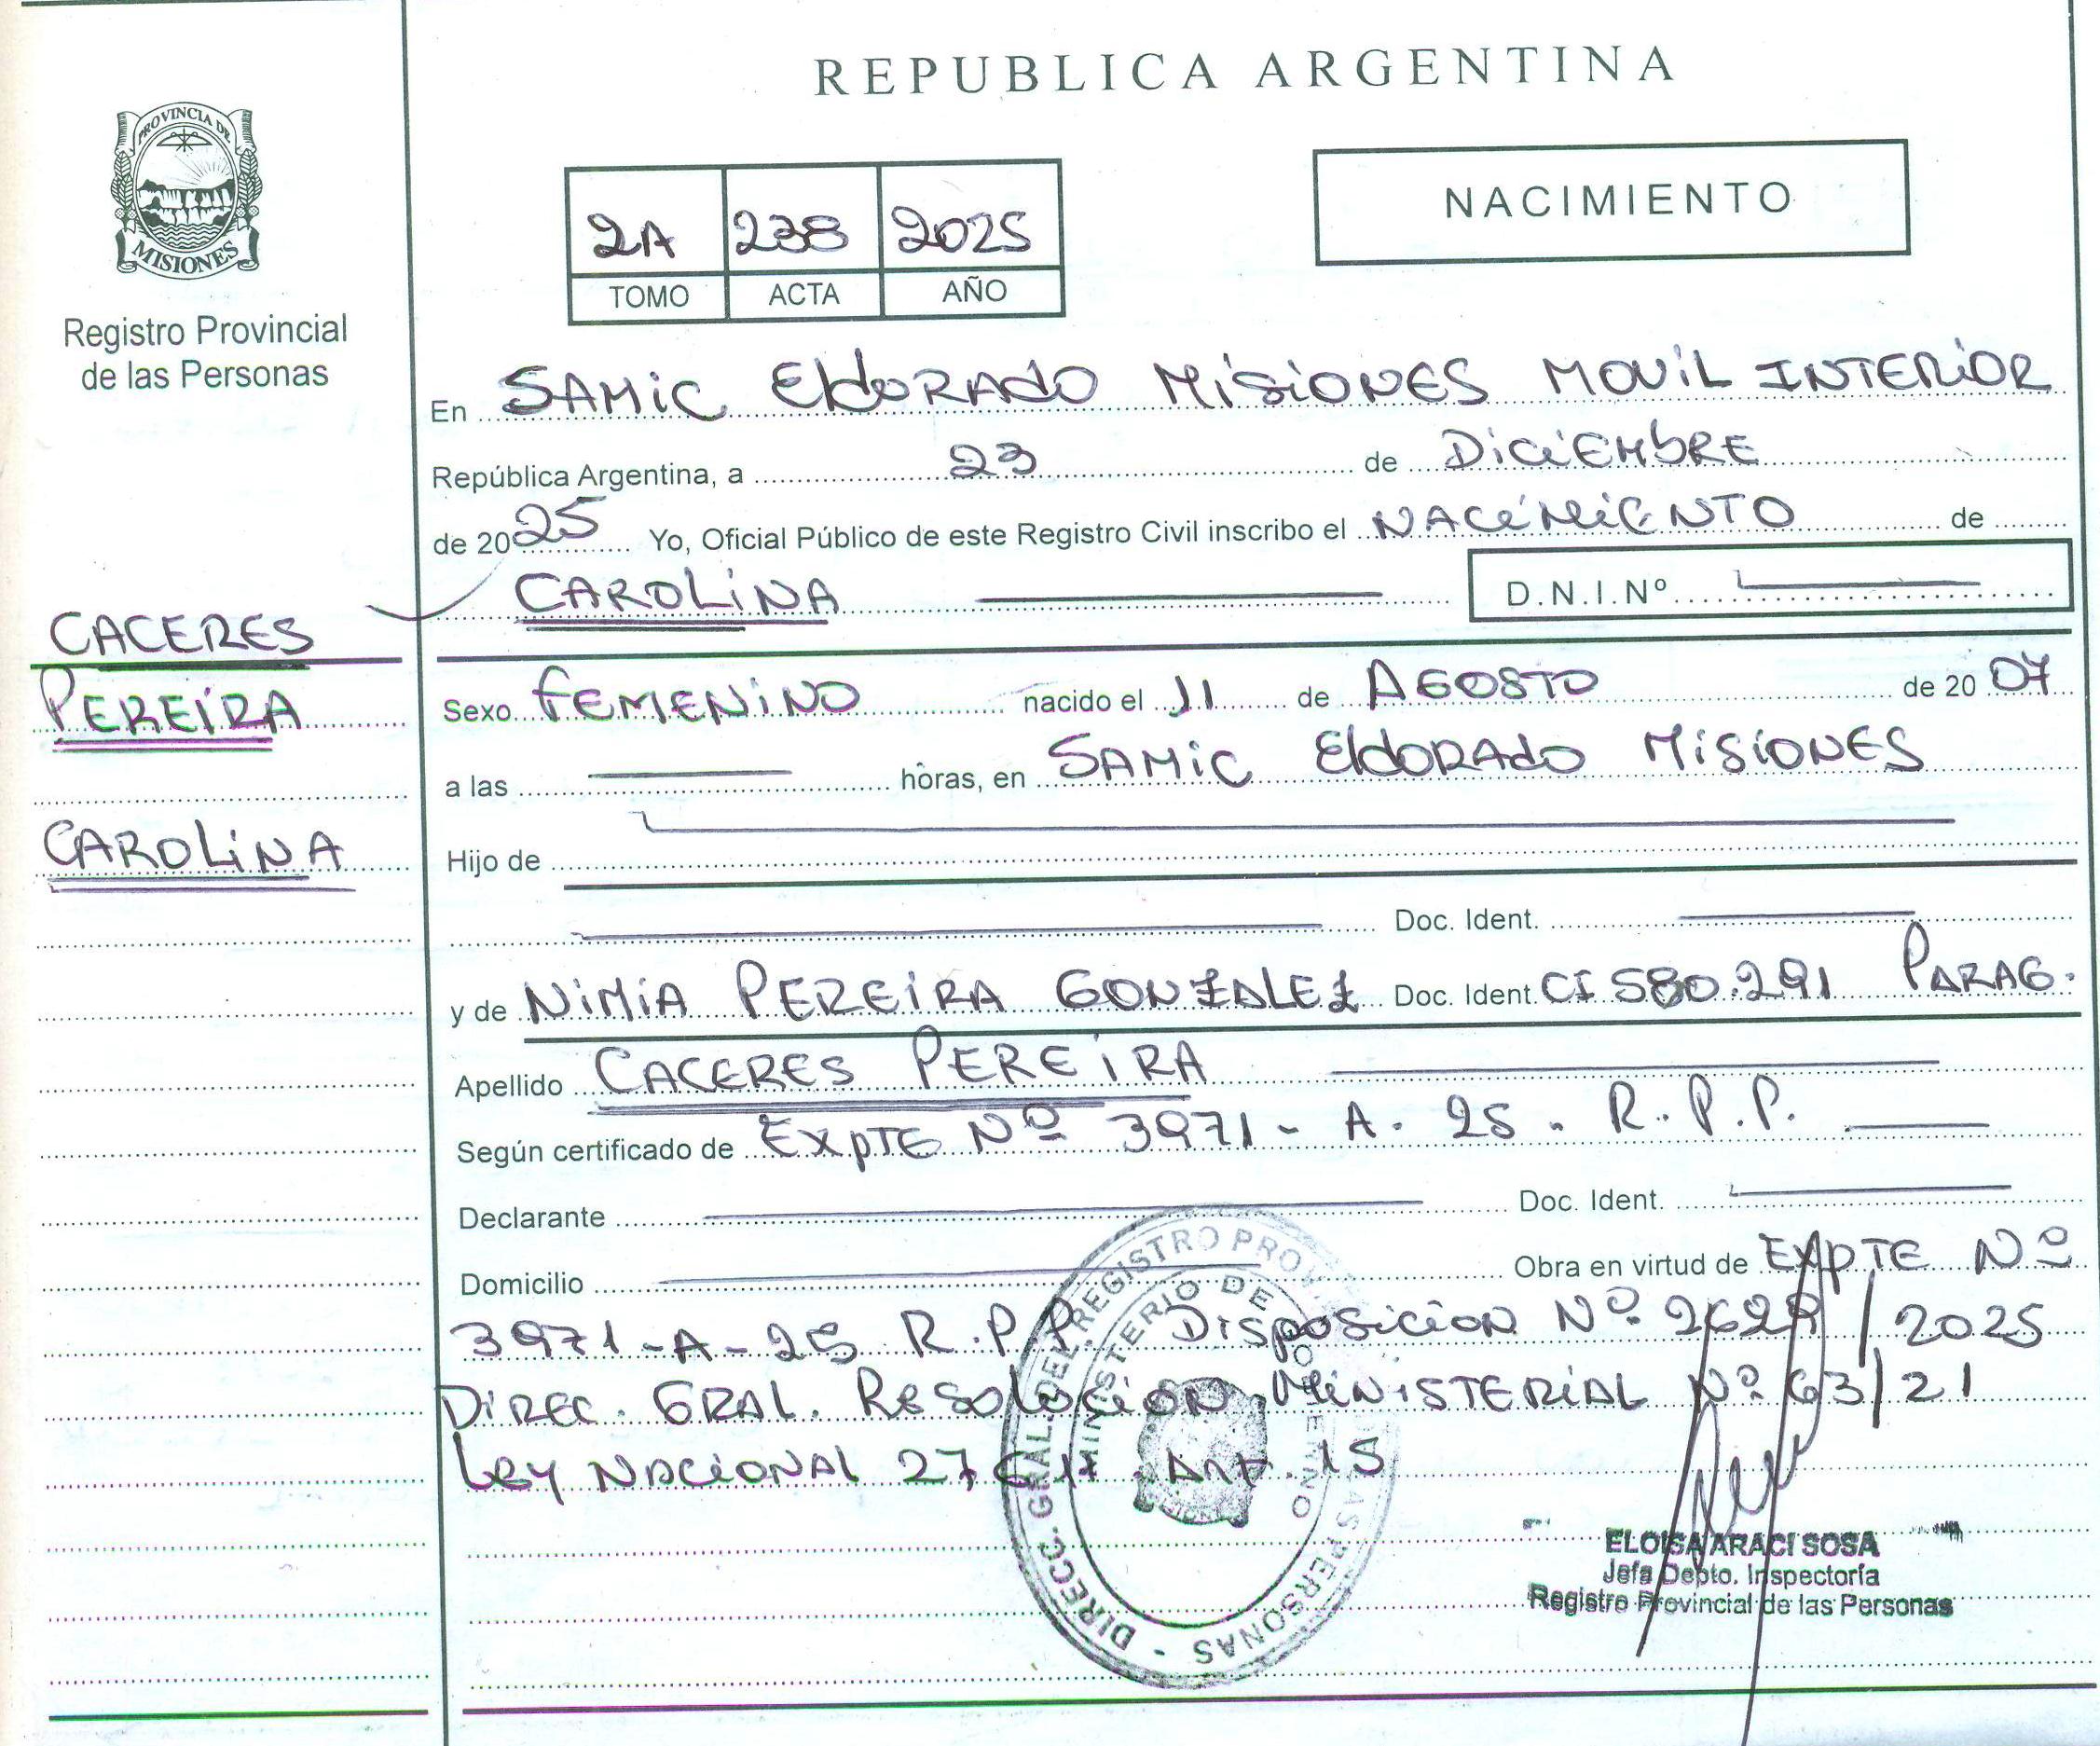 REPUBLICA ARGENTINA
PROVINCIA DE
MISIONES
Registro Provincial
de las Personas
2A 238 2025
TOMO ACTA AÑO
NACIMIENTO
En SAMiC EldoRADO MiSiONES MOViL INTERiOR
República Argentina, a 23 de DiCiEMbRE
de 2025 Yo, Oficial Público de este Registro Civil inscribo el NACiMiENTO de
CAROLiNA D.N.I.Nº
CACERES
PEREiRA
CAROLiNA
Sexo FEMENiNO nacido el 11 de AGOSTO de 20 07
a las horas, en SAMiC EldORADO MiSiONES
Hijo de
Doc. Ident.
y de NiMiA PEREiRA GONZALEZ Doc. Ident. CI 580.291 PARAG.
Apellido CACERES PEREiRA
Según certificado de EXpTE Nº 3971 - A - 25 - R.P.P.
Declarante Doc. Ident.
Domicilio Obra en virtud de EXpTE Nº
3971-A-25 R.P.P. Disposicion Nº 2629/2025
DiREC. GRAL. Resolucion MiNiSTERiAL Nº 63/21
Ley NACiONAL 27611 Art. 15
DIRECC. GRAL. DEL REGISTRO PROV. DE LAS PERSONAS -
MINISTERIO DE GOBIERNO
ELOISA ARACI SOSA
Jefa Depto. Inspectoría
Registro Provincial de las Personas